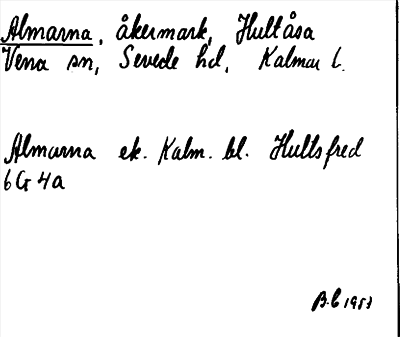 Almarna, åkermark, Hultåsa
Vena sn, Sevede hd, Kalmar l.
Almarna ek. Kalm. bl. Hultsfred
6G 4a
B.C 1957